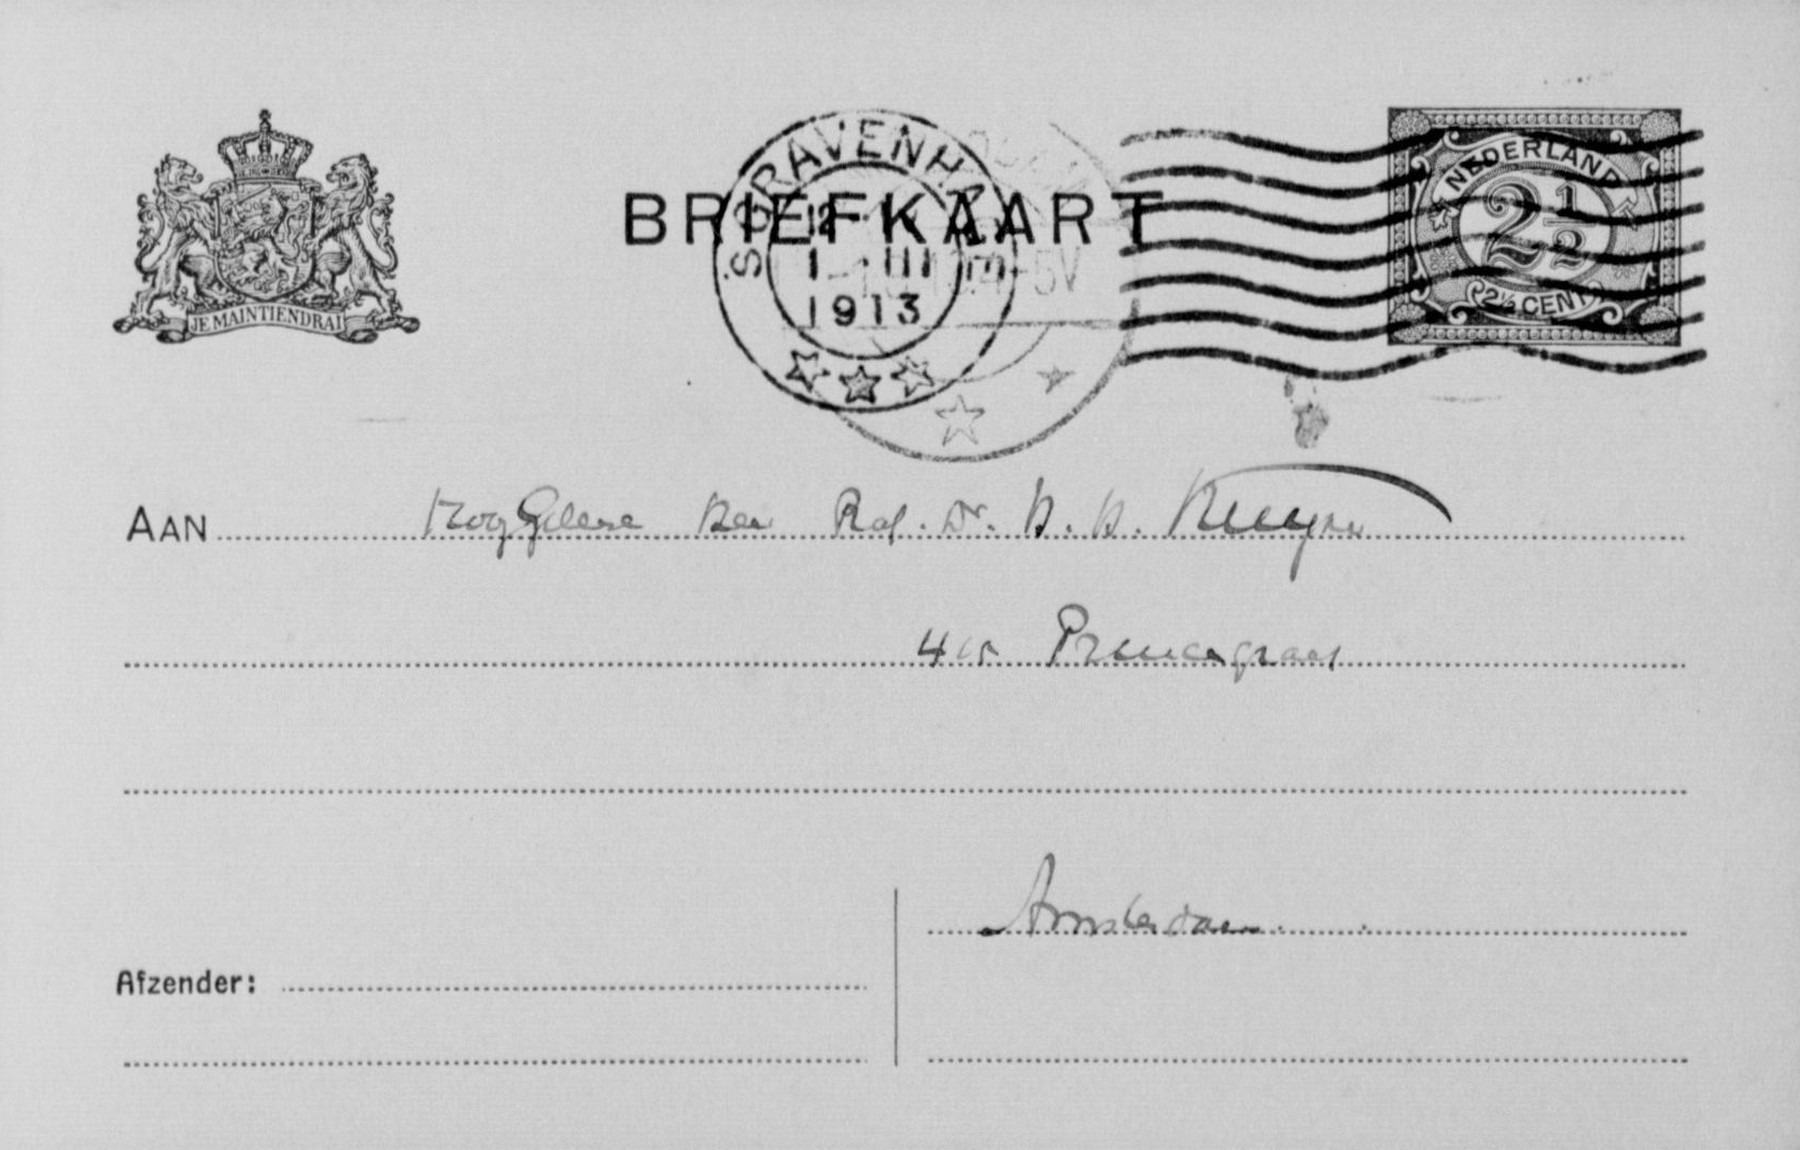 JE MAINTIENDRAI
BRIEFKAART
'S GRAVENHAGE
12
1 . III
1913
-5V
NEDERLAND
2 1/2
2½ CENT
AAN HoogGeleerde Heer Prof. Dr.
Prinsengracht
Amsterdam.
Afzender: